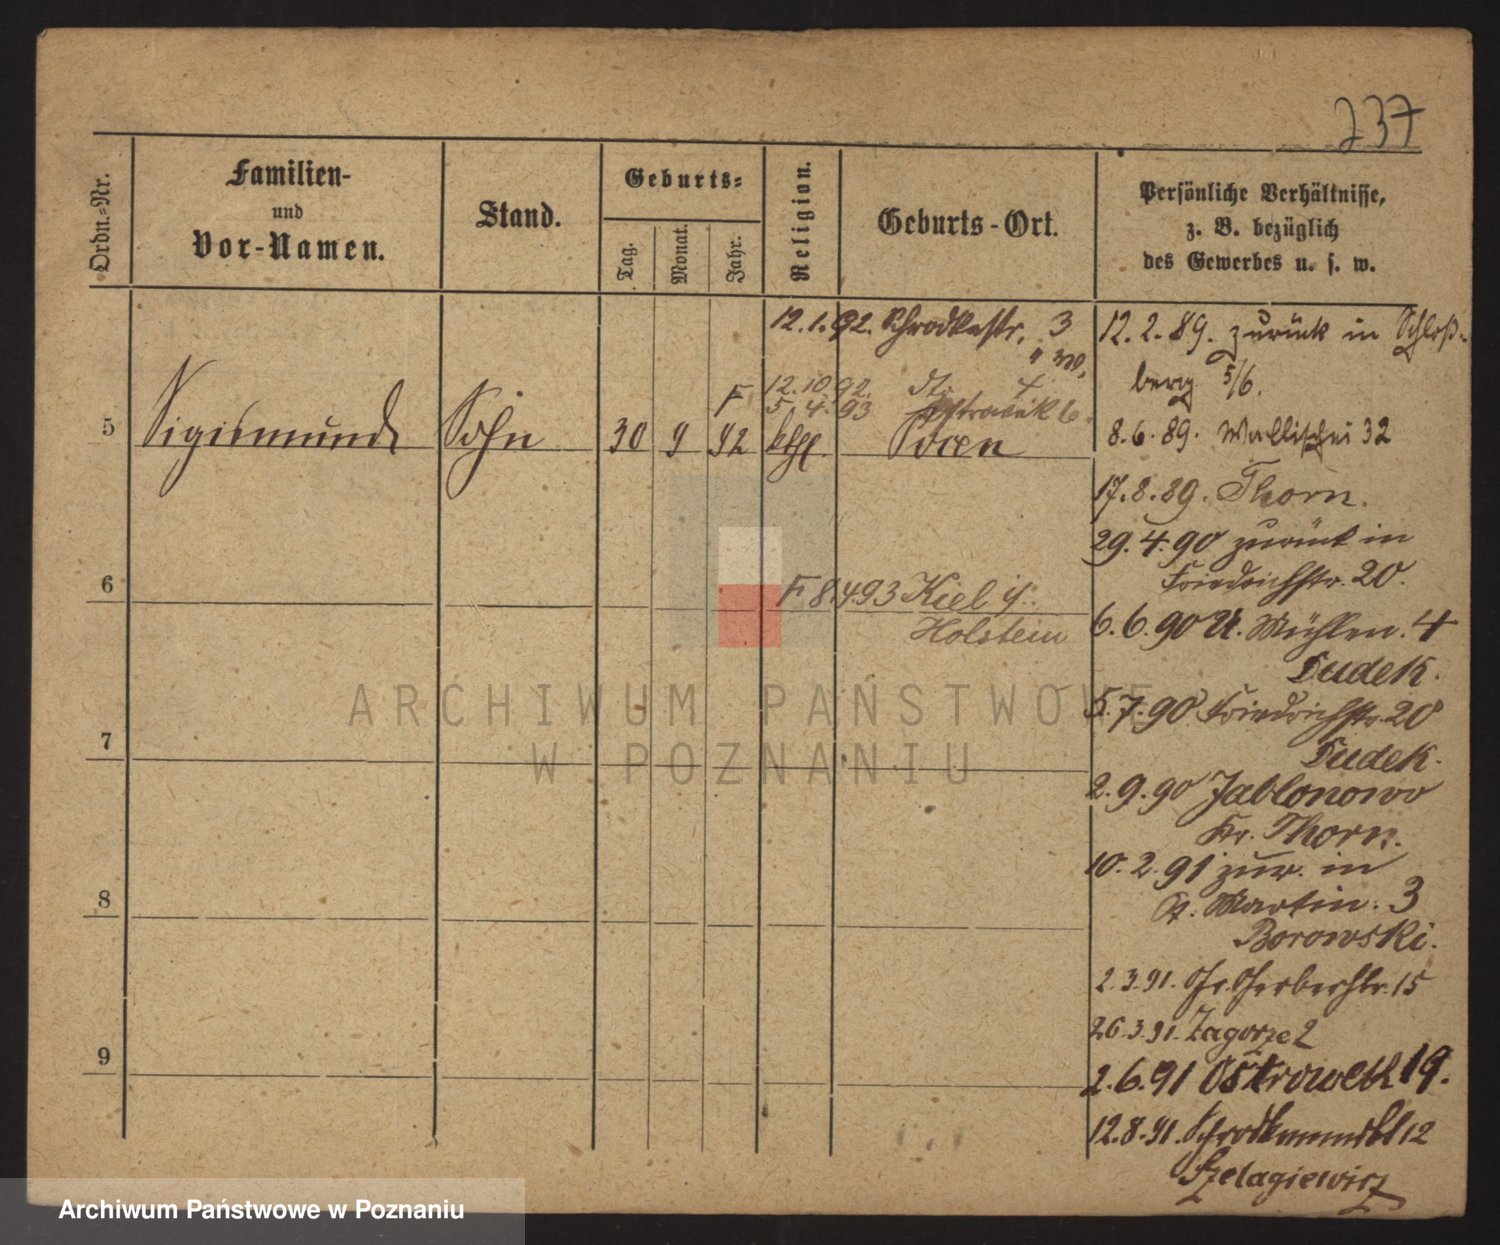 237
Ordn.-Nr.
Familien-
und
Vor-Namen.
Stand.
Geburts-
Tag.
Monat.
Jahr.
Religion.
Geburts-Ort.
Persönliche Verhältnisse,
z. B. bezüglich
des Gewerbes u. s. w.
12.1.92. Schrodkastr. 3
12.10.92. 4
5. 4. 93
5 Sigismund Sohn 30 9 92 kthl. Posen
6
F 8.4.93 Kiel i.
Holstein
7
8
9
12.2.89. zurück in Schloß-
berg 5/6.
8.6.89. Wallischei 32
17.8.89. Thorn.
29.4.90 zurück in
Friedrichstr. 20.
6.6.90 U. Mühlen. 4
Dudek.
5.7.90 Friedrichstr. 20
Dudek.
2.9.90 Jablonowo
Kr. Thorn.
10.2.91 zur. in
St. Martin. 3
Borowski.
2.3.91. Gr. Gerberstr. 15
26.3.91. Zagorze 2
2.6.91 Ostrowek 19.
12.8.91. Schrodkamarkt 12
Szelagiewicz
ARCHIWUM PAŃSTWOWE
W POZNANIU
Archiwum Państwowe w Poznaniu